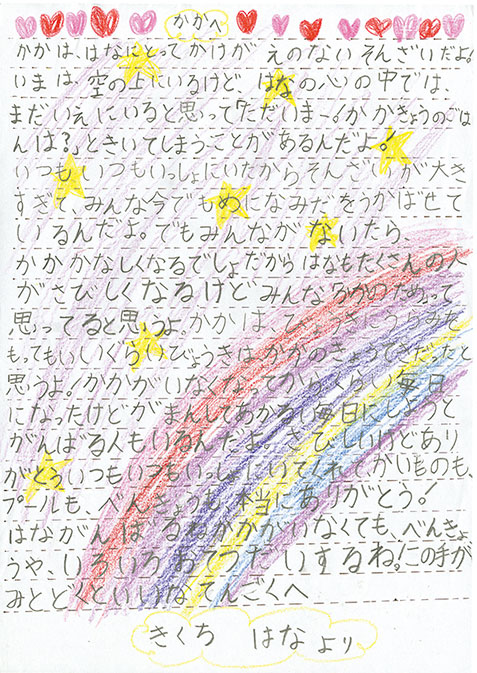 かかへ
かかは、はなにとってかけがえのないそんざいだよ。
いまは、空の上にいるけど、はなの心の中では、
まだいえにいると思って「ただいまー！かかきょうのごは
んは？」ときいてしまうことがあるんだよ！
いつもいつもいっしょにいたからそんざいが大き
すぎて、みんな今でもめになみだをうかばせて
いるんだよ。でもみんながないたら、
かかかなしくなるでしょだからはなもたくさんの人
がさびしくなるけどみんなかかのため。って
思ってると思うよ。かかは、びょうきにうらみを
もってもいいくらいびょうきはかかのきょうてきだったと
思うよ！かかがいなくなってからくらい毎日
になったけどがまんしてあかるい毎日にしようと
がんばる人もいるんだよ。さびしいけどあり
がとういつもいつもいっしょにいてくれてかいものも、
プールも、べんきょうも、本当にありがとう！
はながんばるねかかがいなくても、べんきょ
うや、いろいろおてつだいするね。この手が
みとどくといいなてんごくへ
きくち はなより